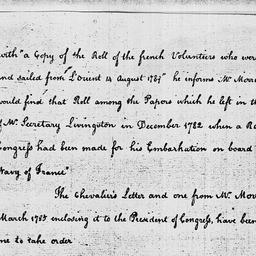 with "a Copy of the Roll of the french Volunteers who were
and sailed from L'orient 14 August 1781" he informs Mr Morr
would find that Roll among the Papers which he left in th
of Mr Secretary Livingston in December 1782 when a Re
Congress had been made for his Embarkation on board
Navy of France"
The Chevalier's Letter and one from Mr Mor
March 1783 enclosing it to the President of Congress, have been
me to take order